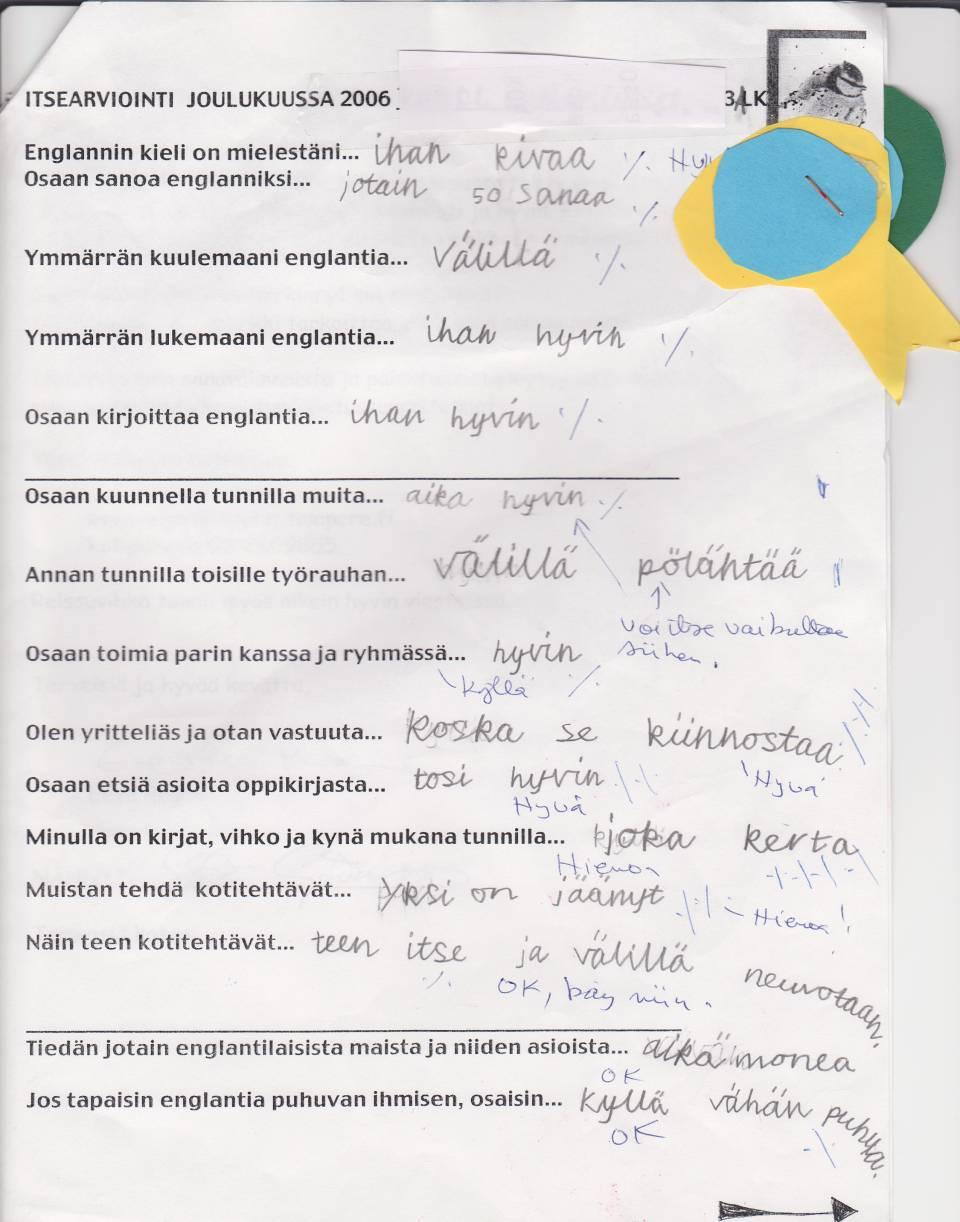 ITSEARVIOINTI JOULUKUUSSA 2006 3A LK
Englannin kieli on mielestäni... ihan kivaa ·/. Hyvä
Osaan sanoa englanniksi... jotain 50 sanaa ·/.
Ymmärrän kuulemaani englantia... välillä ·/.
Ymmärrän lukemaani englantia... ihan hyvin ·/.
Osaan kirjoittaa englantia... ihan hyvin ·/.
Osaan kuunnella tunnilla muita... aika hyvin ·/.
Annan tunnilla toisille työrauhan... välillä pölähtää
voi itse vaikuttaa
siihen.
Osaan toimia parin kanssa ja ryhmässä... hyvin
Kyllä ·/.
Olen yritteliäs ja otan vastuuta... koska se kiinnostaa
Hyvä
Osaan etsiä asioita oppikirjasta... tosi hyvin
Hyvä
Minulla on kirjat, vihko ja kynä mukana tunnilla... joka kerta
Hienoa
Muistan tehdä kotitehtävät... yksi on jäänyt
Hienoa!
Näin teen kotitehtävät... teen itse ja välillä neuvotaan.
·/. OK, käy niin.
Tiedän jotain englantilaisista maista ja niiden asioista... aika monea
OK
Jos tapaisin englantia puhuvan ihmisen, osaisin... kyllä vähän puhua.
OK